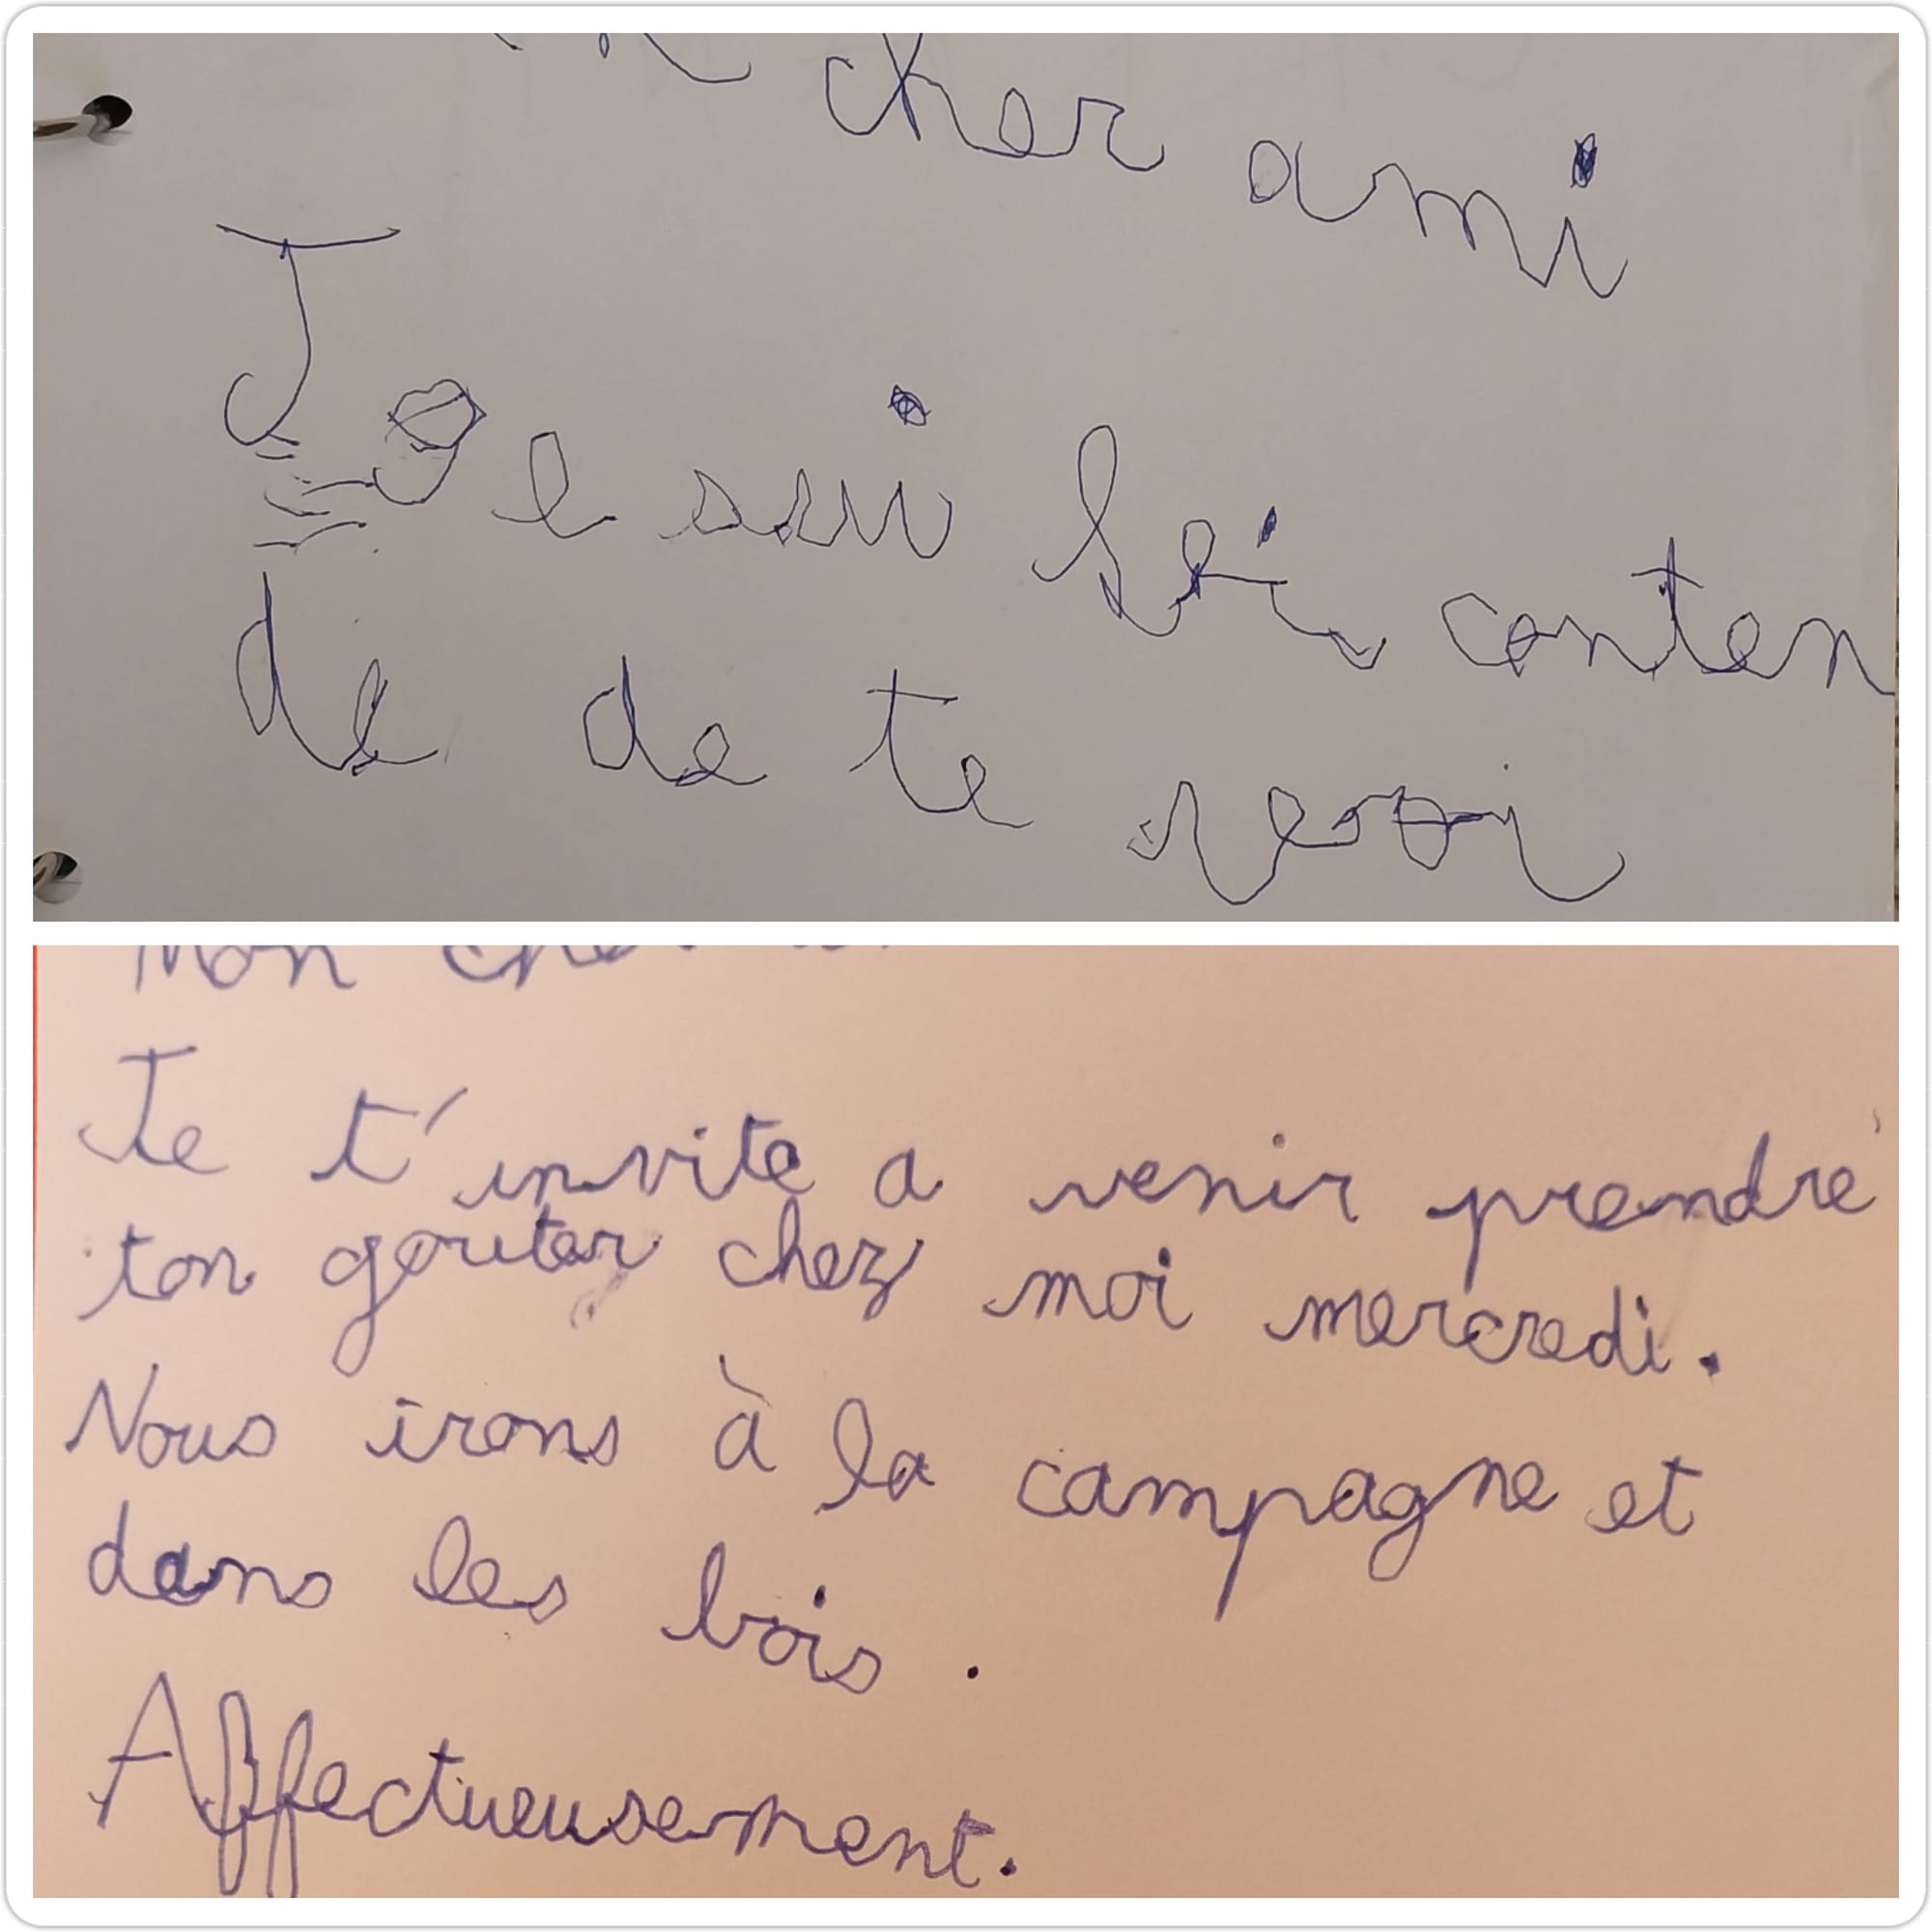 cher ami
Je sui bein conten
de de te revoi
Mon cher
Je t'invite a venir prendre
ton gouter chez moi mercredi.
Nous irons à la campagne et
dans les bois.
Affectueusement.